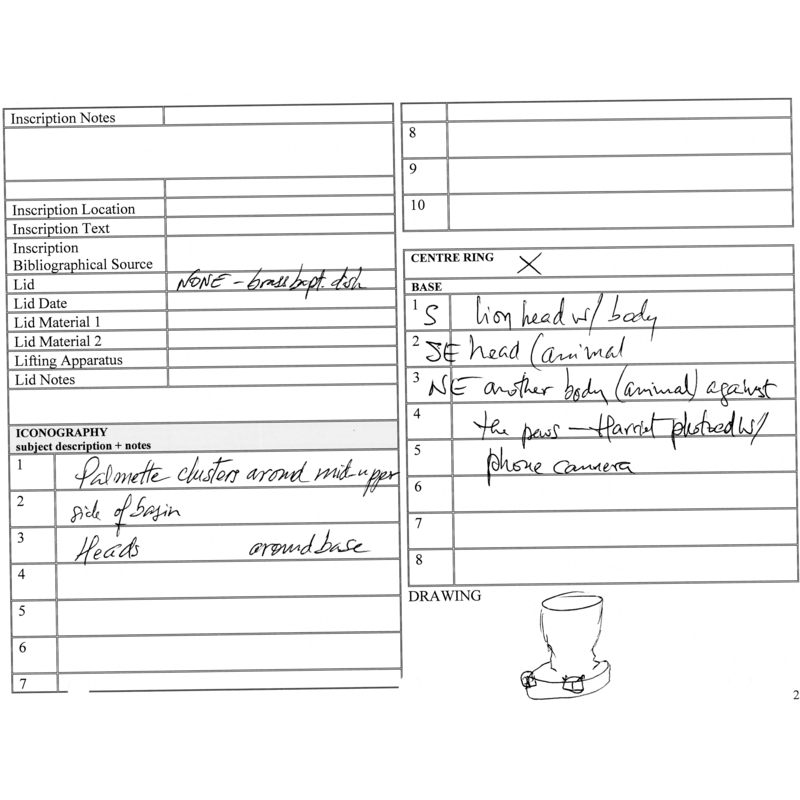 Inscription Notes
Inscription Location
Inscription Text
Inscription
Bibliographical Source
Lid NONE - brass bapt. dish
Lid Date
Lid Material 1
Lid Material 2
Lifting Apparatus
Lid Notes
ICONOGRAPHY
subject description + notes
1 Palmette clusters around mid-upper
2 side of basin
3 Heads around base
4
5
6
7
8
9
10
CENTRE RING X
BASE
1 S lion head w/ body
2 SE head (animal
3 NE another body (animal) against
4 the pews - Harriet photoed w/
5 phone camera
6
7
8
DRAWING
2